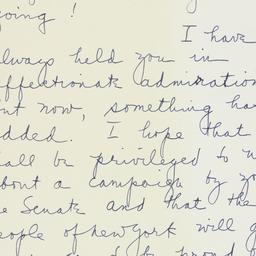 going!
I have
always held you in
affectionate admiration
but now, something has
added. I hope that
shall be privileged to
about a campaign by yo
e Senate and that the
eople of New York will g
be proud